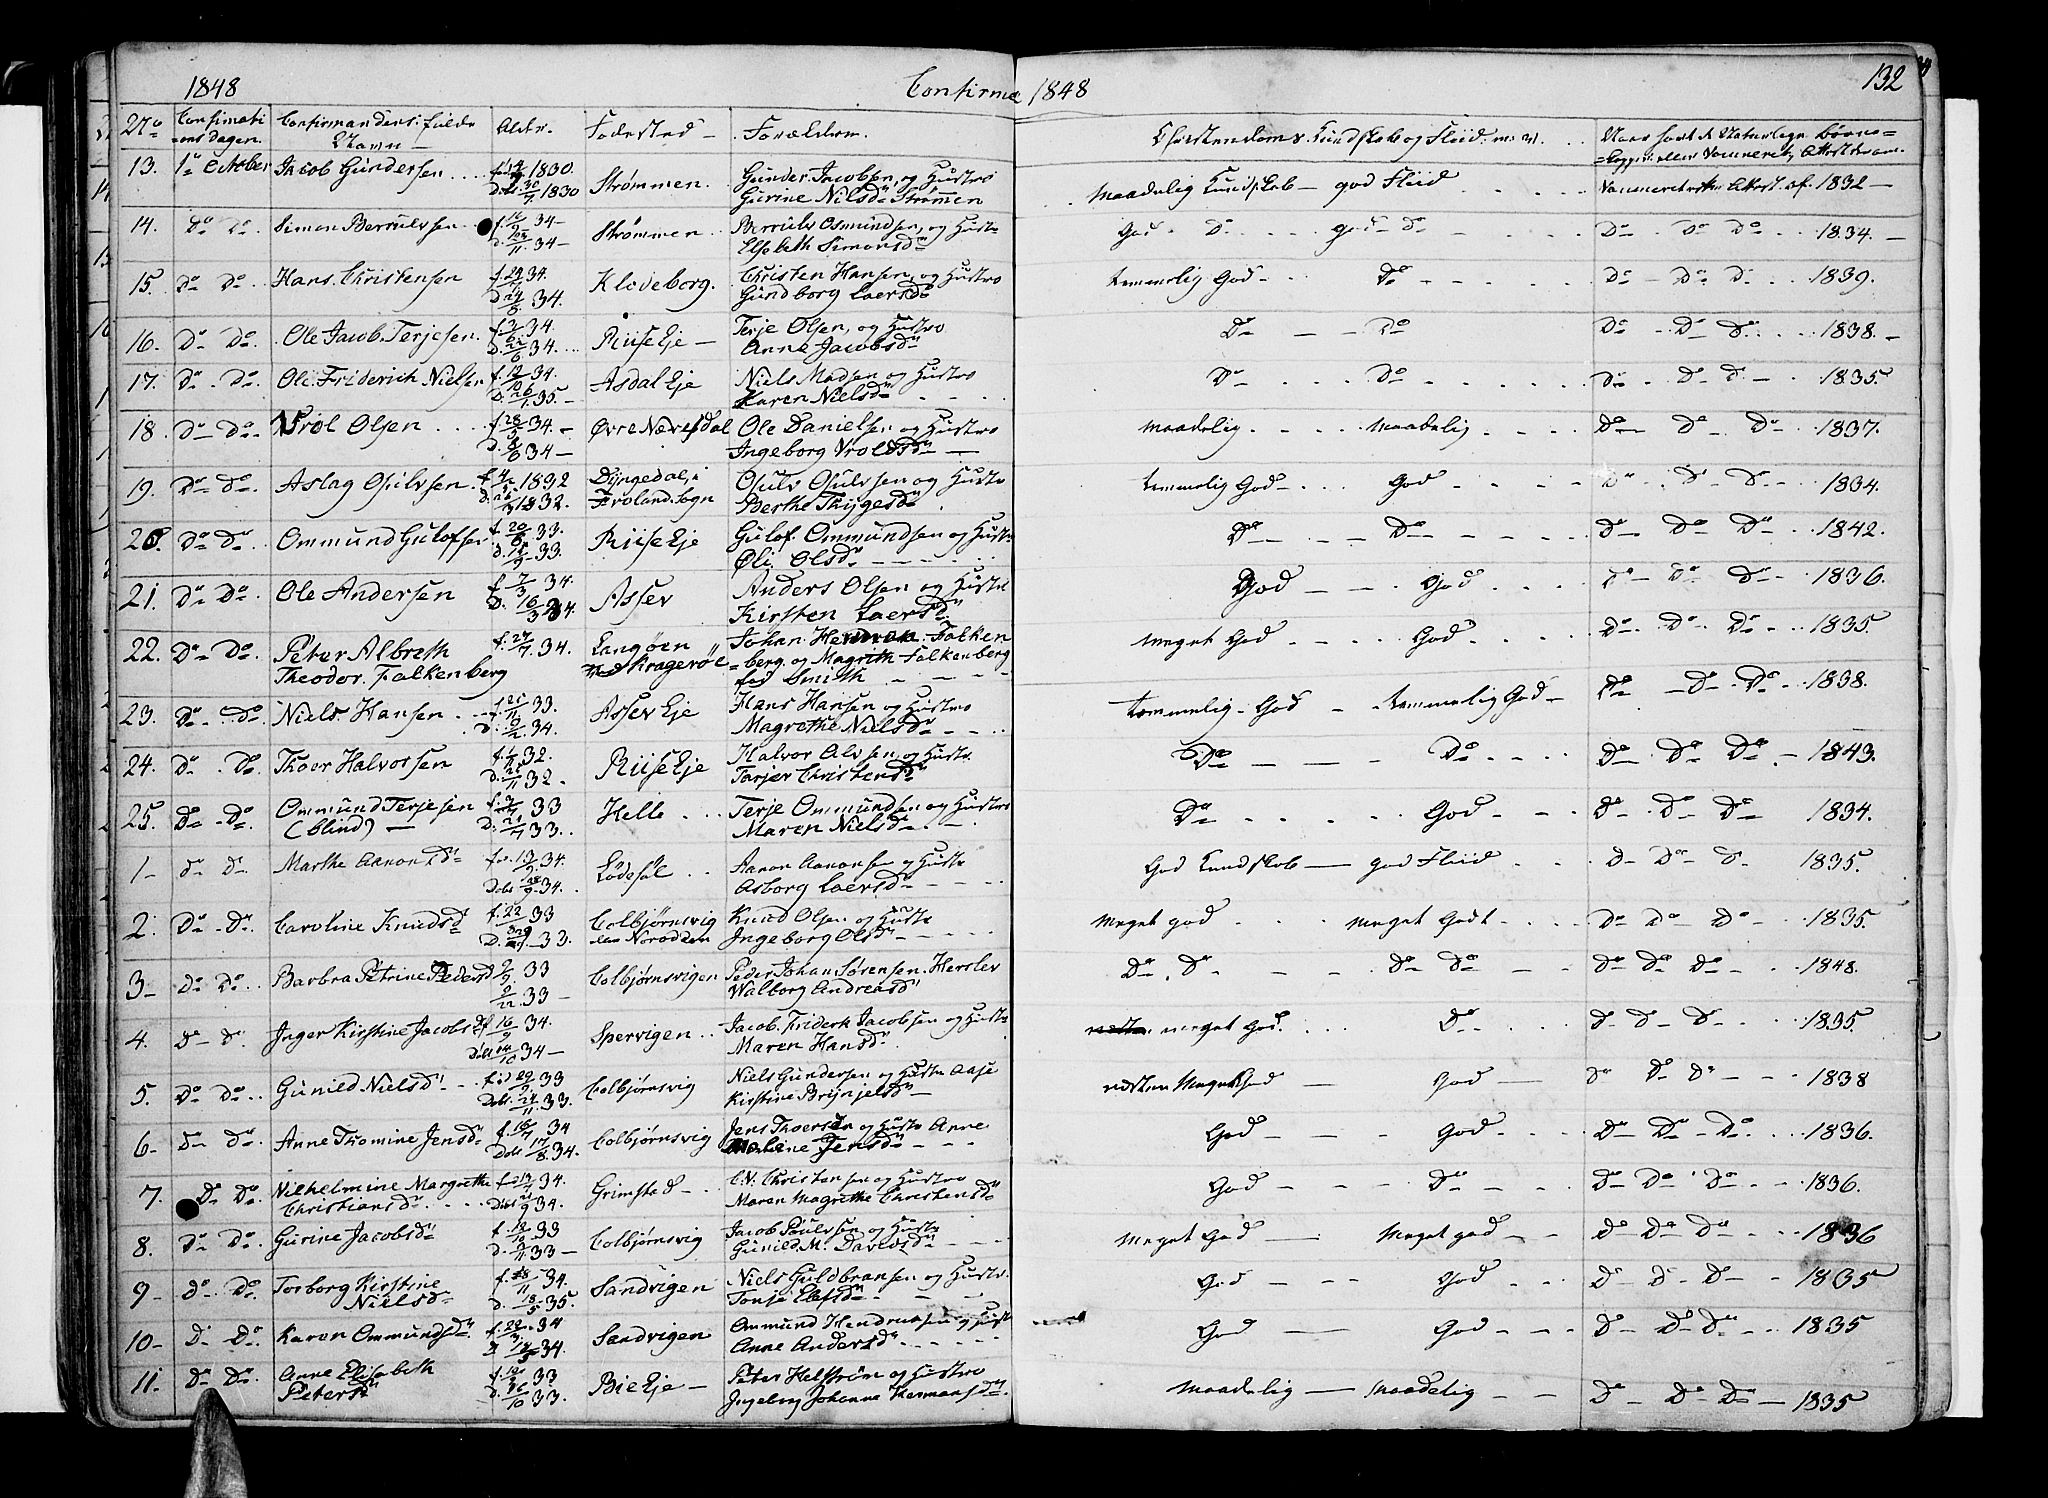 1848 Confirma 1848 132
No Confirmations dagen. Confirmandens fulde Navn Alder. Fødested Forældrene. Christendoms Kundskab og Fliid m: v.
13. 1ste October Jacob Gundersen 1830 Strømmen. Gunder Jacobsen, og Hustro maadelig Kundskab god Fliid 1832
1830 Gurine Nilsd Strømmen
14. Do Do Simon Berrulvsen 34 Strømmen Berrulv Osmundsen, og Hust. God Do god Do Do Do Do 1834.
34 Elsebeth Simonsd
15. Do Do Hans Christensen 34. Klodeborg. Christen Hansen, og Hustro temmelig God Do Do Do Do 1839.
34. Gundborg Laersd
16. Do Do Ole Jacob Terjesen 34. Riise Eje Terje Olsen, og Hustro Do Do Do Do Do 1838.
34. Anne Jacobsd
17. Do Do Ole Friderich Nielsen 34. Asdal Eje Niels Madsen og Hustro Do Do Do Do Do 1835.
35. Karen Nielsd
18. Do Do Vrol Olsen 34. Øvre Næresdal Ole Danielsen og Hustro maadelig maadelig Do Do Do 1837.
34 Ingeborg Vroldsd
19. Do Do Aslag Osulvsen 1832 Dyngedal, i Osulv Osulvsen og Hustro temmelig God God Do Do Do 1834.
1832. Froland Sogn Berthe Thygesd
20. Do Do Ommund Gulofsen 33. Riise Eje Gulof Ommundsen og Hustro Do Do Do Do Do 1842.
33. Øli Olsd
21. Do Do Ole Andersen 7/3 34. Assev Anders Olsen og Hustro God God Do Do Do 1836.
16/3 34. Kirsten Laersd
22. Do Do Peter Albreth 34. Langøen Johan Falken meget God God Do Do Do 1835
Theodor Falkenberg ved Kragerøe berg og Magrith Falkenberg
fød Smith
23. Do Do Niels Hansen 33. Assev Eje Hans Hansen og Hustro temmelig God temmelig God Do Do Do 1838.
34. Magrethe Nielsd
24. Do Do Thoer Halvorsen 32. Riise Eje Halvor Alvsen og Hustro Do Do Do Do Do 1843.
32. Tarjer Christensd
25. Do Do Ommund Terjesen 33 Helle Terje Ommundsen og Hustro Do God Do Do Do 1834.
(blind) 33. Maren Nielsd
1 Do Do Marthe Aanonsd 34. Lødesøl Aanon Aanonsen og Hustro God Kundskab god Fliid Do Do Do 1835
34. Asborg Laersd
2. Do Do Caroline Knudsd 33 Colbjørnsvig Knud Olsen og Hustro Meget god meget Godt Do Do Do 1835.
33. Ingeborg Olsd
3 Do Do Barbra Petrine Pedersd 33 Colbjørnsvigen Peder Johan Sørensen Herslev Do Do Do Do Do Do Do 1848.
33 Walborg Andreasd
4. Do Do Inger Kirstine Jacobsd 34. Spervigen Jacob Friderk Jacobsen og Hustro meget God. Do Do Do Do 1835.
34 Maren Hansd
5. Do Do Gunild Nielsd 33 Colbjørnsvig Niels Gundersen og Hustro Aase næsten Meget God God Do Do Do 1838
33. Kirstine Brynjelsd
6 Do Do Anne Thomine Jensd 34 Colbjørnsvig Jens Thoersen og Hustro Anne God God Do Do Do 1836.
34. Jensd
7. Do Do Wilhelmine Margrethe 34. Grimstad C. N. Christensen og Hustro God Do Do Do Do 1836.
Christiansd 34. Maren Magrethe Christensd
8. Do Do Gurine Jacobsd 33 Colbjørnsvig Jacob Paulsen og Hustro Meget God Meget god Do Do Do 1836
33 Gunild M. Davidsd
9 Do Do Torborg Kirstine 34. Sandvigen Niels Guldbransen og Hustro God God Do Do Do 1835
Nielsd 35. Tonje Olefsd
10 Do Do Karen Ommundsd 34 Sandvigen Ommund Hendrichsen og Hustro God God Do Do Do 1835
34. Anne Andersd
11 Do Do Anne Elisabeth 33 Bie Eje Peter Helstrøm og Hustro Maadelig Maadelig Do Do Do 1835
Petersd 33. Ingeborg Johanne Hermansd